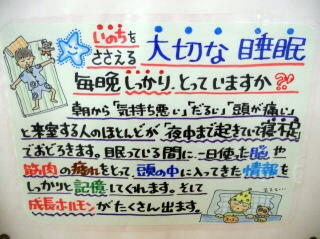 いのちを
ささえる 大切な 睡眠
毎晩しっかりとっていますか?!
朝から「気持ち悪い」「だるい」「頭が痛い」
と来室する人のほとんどが「夜中まで起きていて寝不足」
でおどろきます。眠っている間に一日使った脳や
筋肉の疲れをとって、頭の中に入ってきた情報を
しっかりと記憶してくれます。そして
成長ホルモンがたくさん出ます。